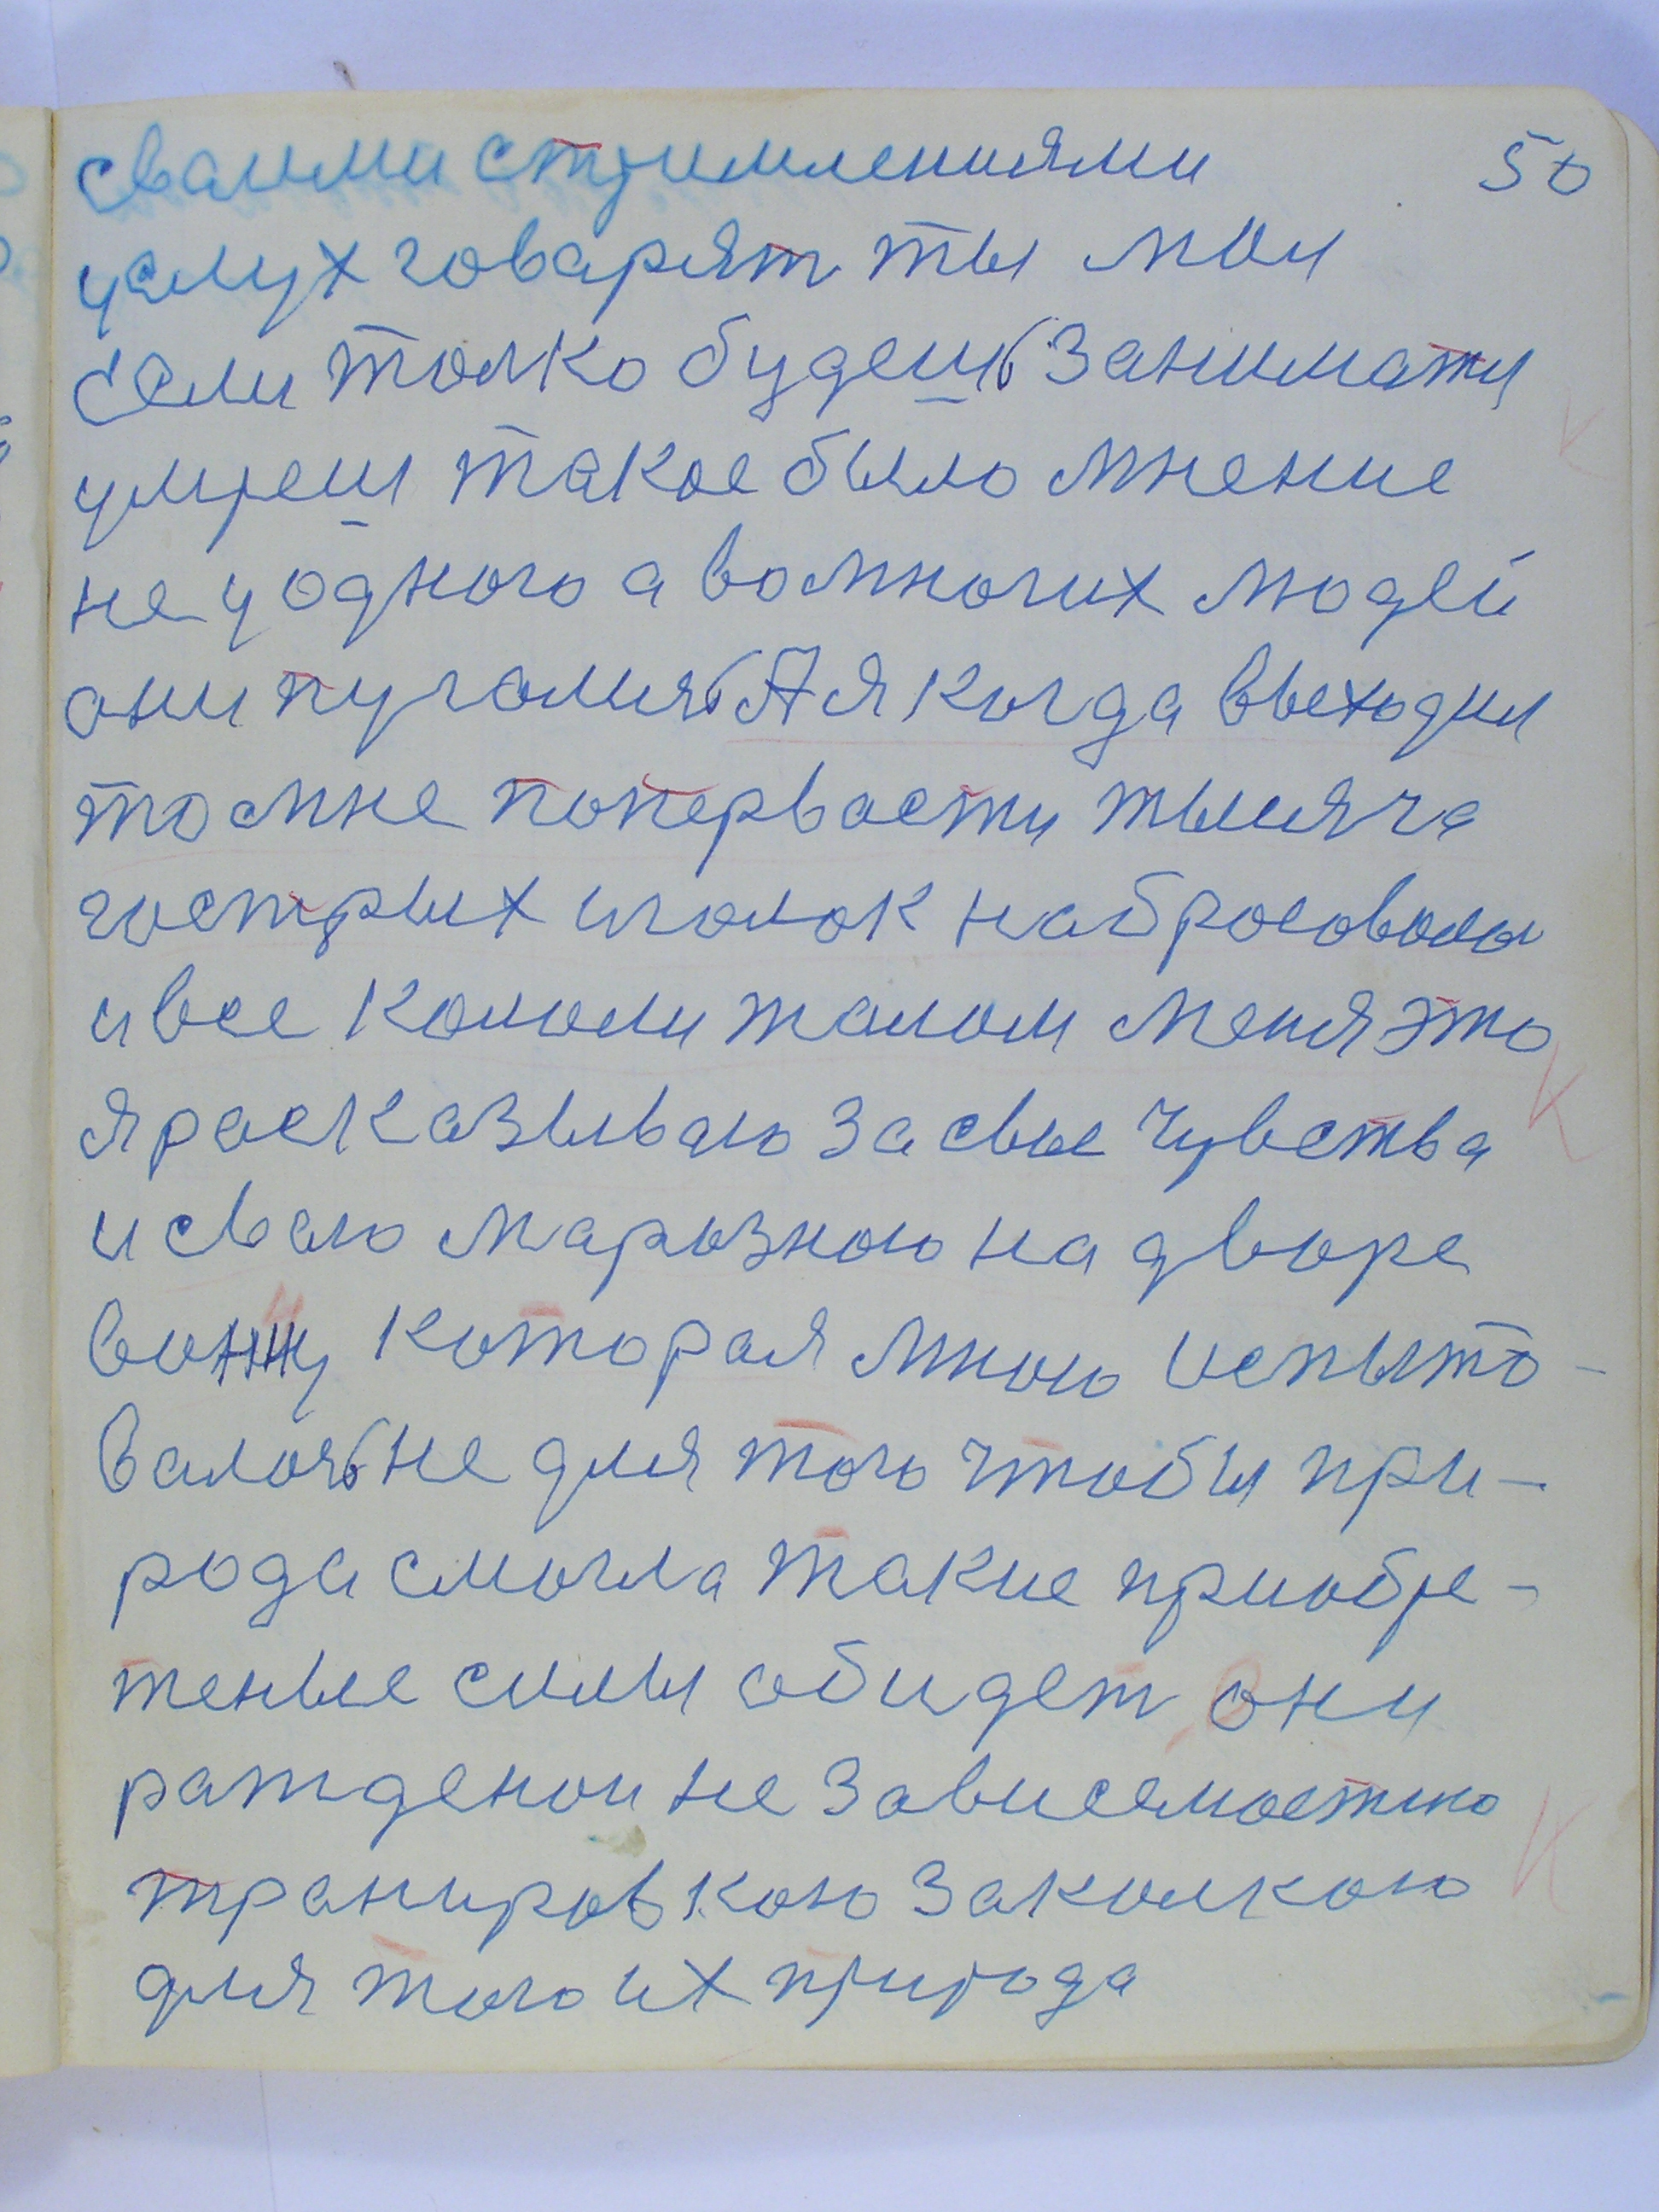 сваими стримлениями 50
услух говарят ты мои
Если толко будешь занимаття
умреш такое было мнение
не у одного а вомногих людей
они пугались А я когда выходил
то мне попервасти тысяча
гострых иголок набросовалы
и все кололи жалом меня это
я расказываю за свое чувства
и сваю марозную на дворе
которая мною испыто-
валась не для того чтобы при-
рода смогла такие приобре-
теные силы обидет они
ражденои не зависемостю
транировкою закалкою
для того их природа